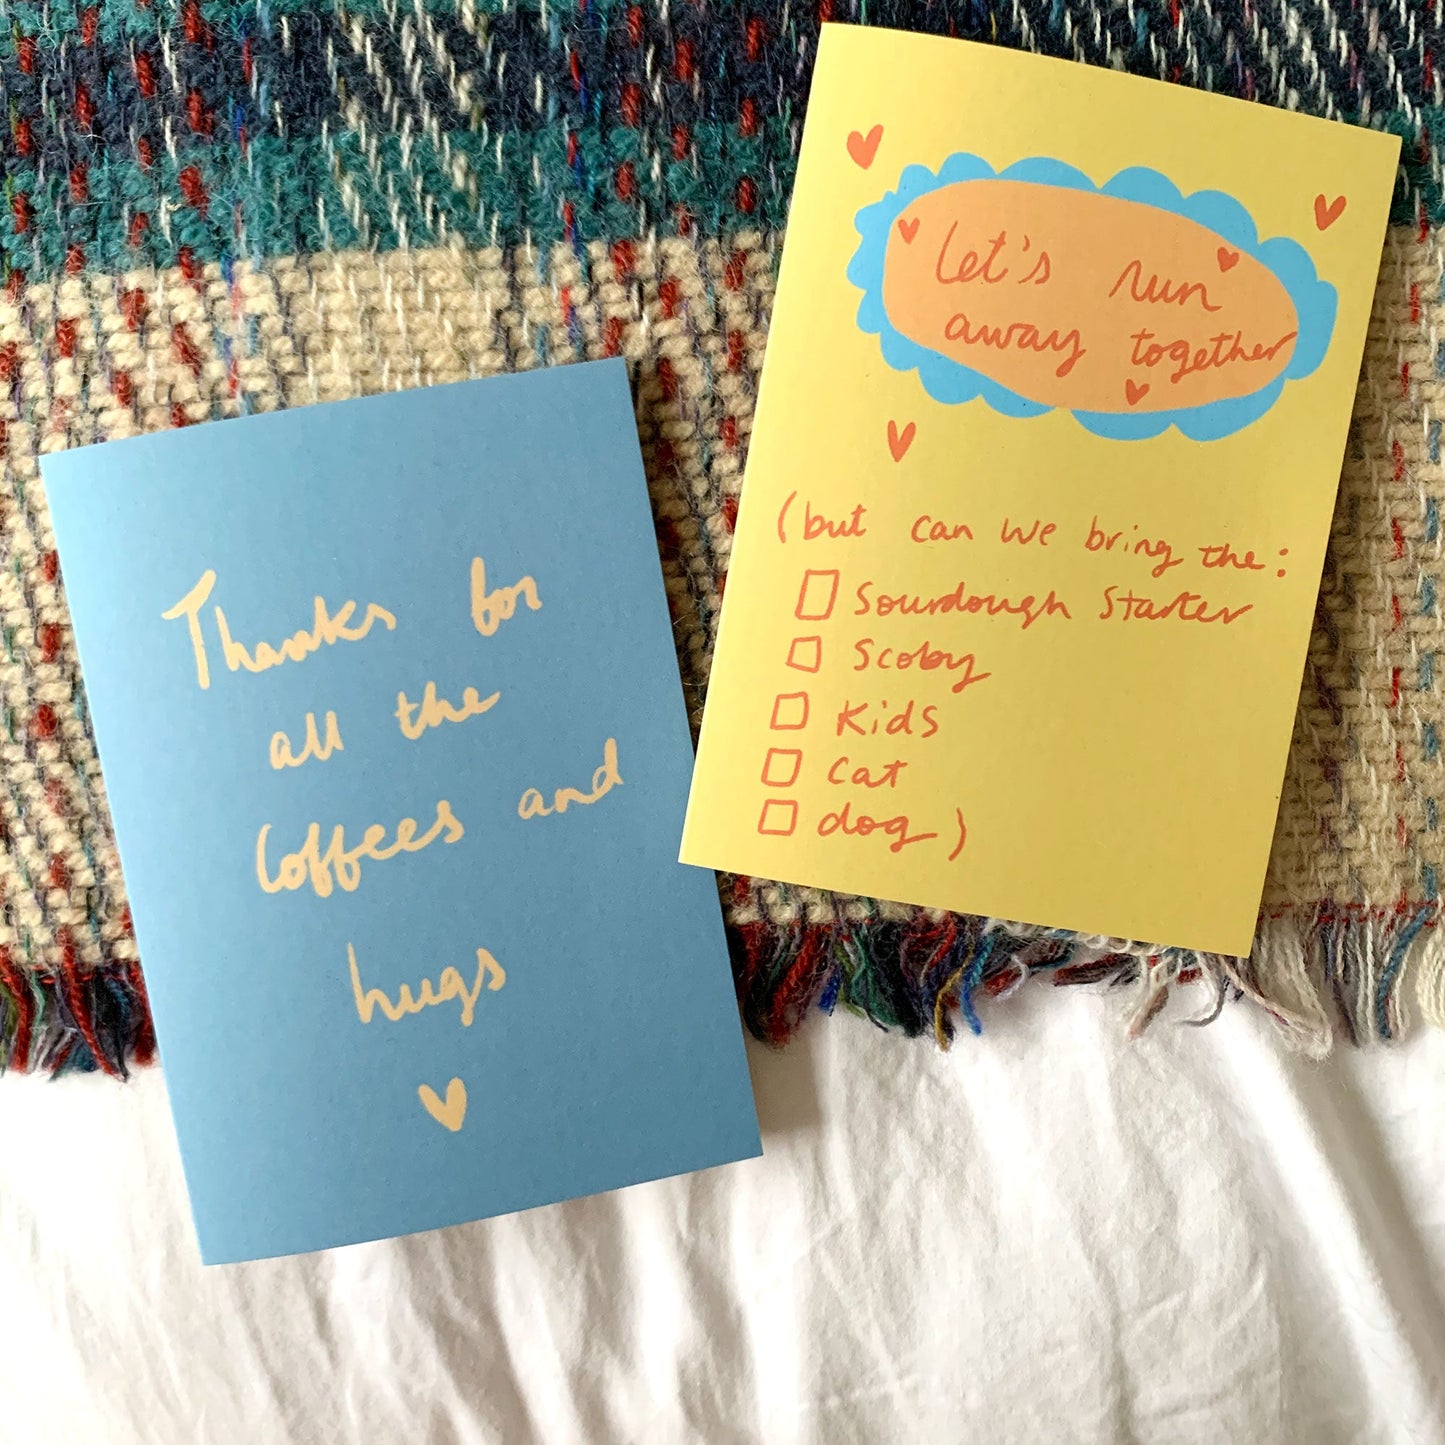 Thanks for
all the
Coffees and
hugs
Let's run
away together
(but can we bring the:
Sourdough Starter
Scoby
Kids
Cat
dog)